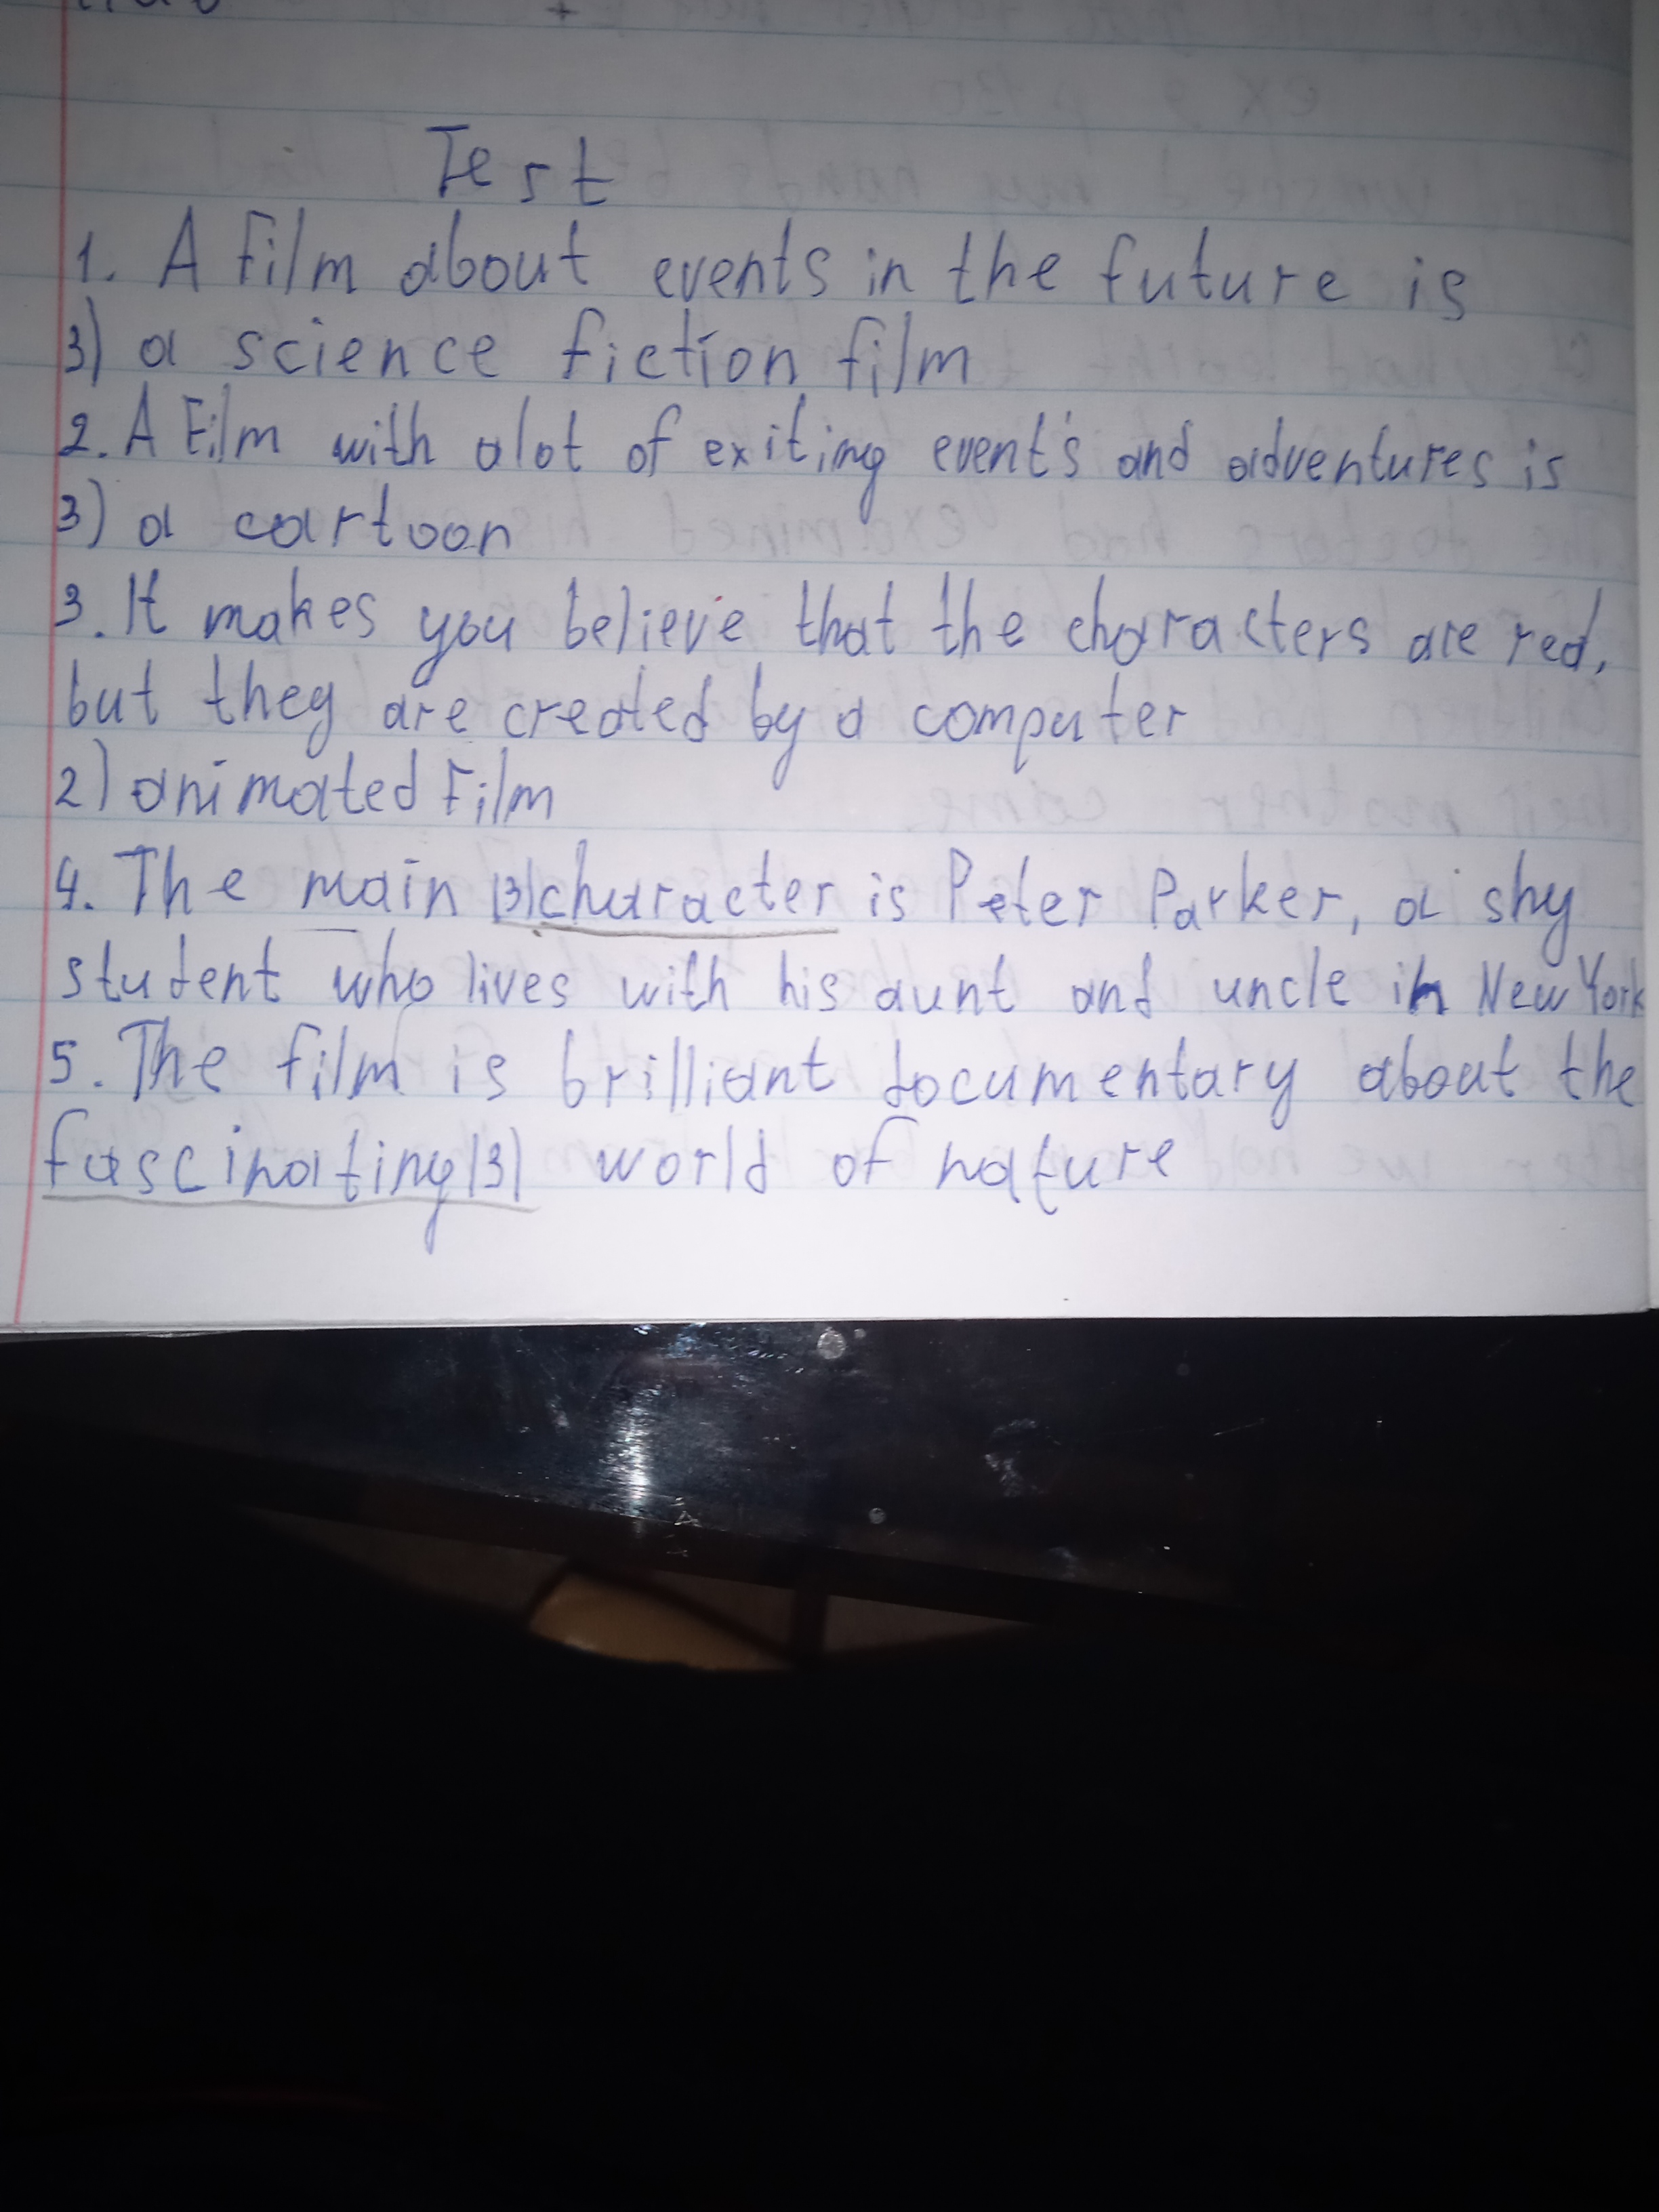 Test
1. A film about events in the future is
3) a science fiction film
2. A Film with alot of exiting event's and adventures is
3) a cartoon
3. It makes you believe that the characters are red,
but they are created by a computer
2) animated Film
4. The main |3| character is Peter Parker, a shy
student who lives with his aunt and uncle in New York
5. The film is brilliant documentary about the
fascinating |3| world of nature